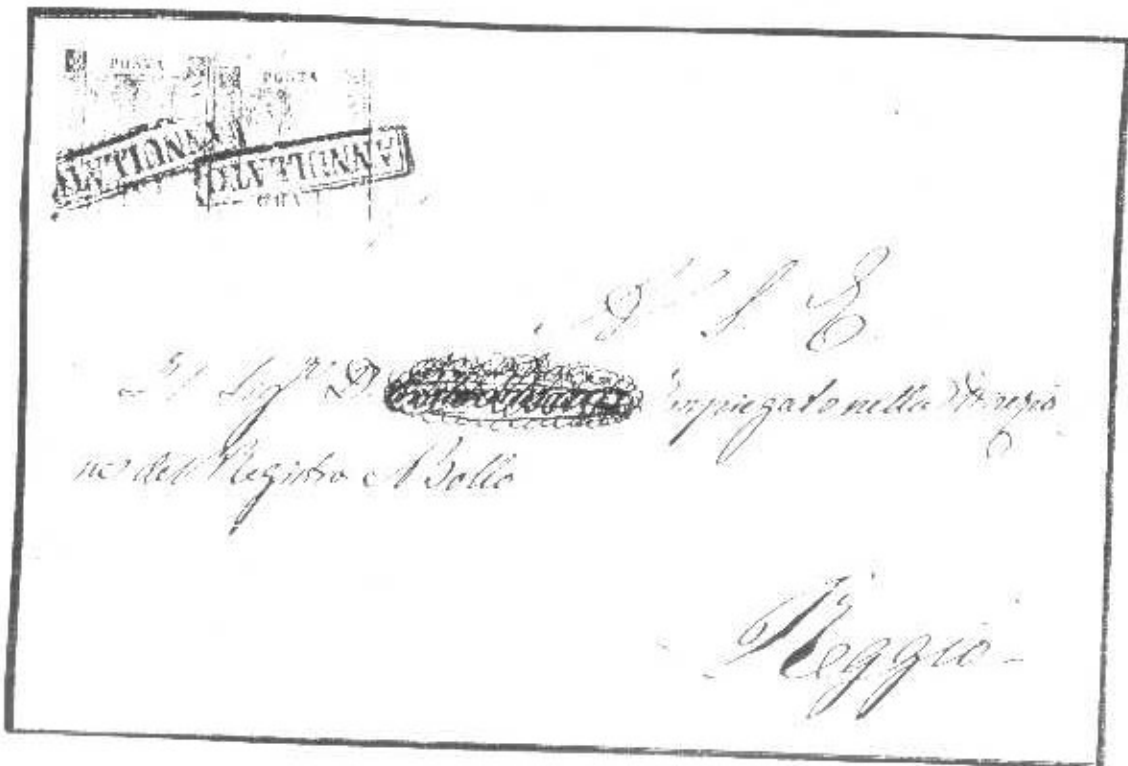 POSTA POSTA
ANNULLATO ANNULLATO
S. E.
Al Sigr. D. Impiegato nella Direzio
ne del Registro e Bollo
Reggio